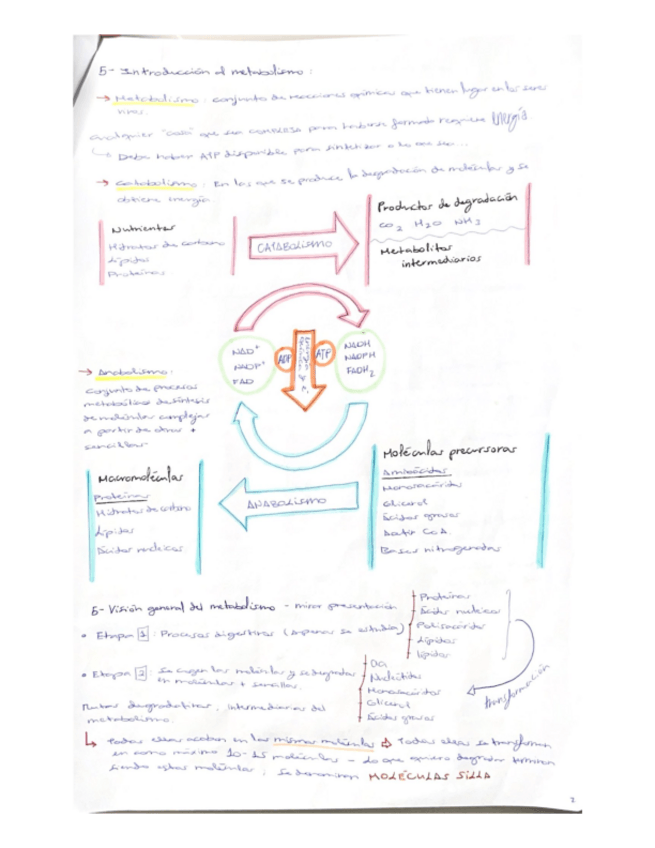 5- Introducción al metabolismo:
→ Metabolismo: conjunto de reacciones químicas que tienen lugar en los seres
vivos.
Cualquier "cosa" que sea compleja para hacerse formada requiere Energía.
Debe haber ATP disponible para sintetizar o lo que sea...
→ Catabolismo: En las que se produce la degradación de moléculas y se
obtiene energía.
Nutrientes
Hidratos de carbono
Lípidos
Proteínas
CATABOLISMO
Productos de degradación
CO2 H2O NH3
Metabolitos
intermediarios
NAD+
NADP+
FAD
ADP
ATP
NADH
NADPH
FADH2
→ Anabolismo:
Conjunto de procesos
metabólicos de síntesis
de moléculas complejas
a partir de otras +
sencillas
Macromoléculas
Proteínas
Hidratos de carbono
Lípidos
Ácidos nucleicos
ANABOLISMO
Moléculas precursoras
Aminoácidos
Monosacáridos
Glicerol
Ácidos grasos
Acetil CoA
Bases nitrogenadas
6- Visión general del metabolismo - mirar presentación
• Etapa 1: Procesos digestivos (Apenas se estudia)
Proteínas
Ácidos nucleicos
Polisacáridos
Lípidos
Lípidos
• Etapa 2: Se cogen las moléculas y se degradan
en moléculas + sencillas.
Nucleótidos
Monosacáridos
Glicerol
Ácidos grasos
transformación
Rutas degradativas, intermediarias del
metabolismo.
↳ Todas ellas acaban en las mismas moléculas ⇨ Todas ellas se transforman
en como máximo 10-15 moléculas - Lo que quiero degradar terminan
siendo estas moléculas, se denominan MOLÉCULAS SILLA
2